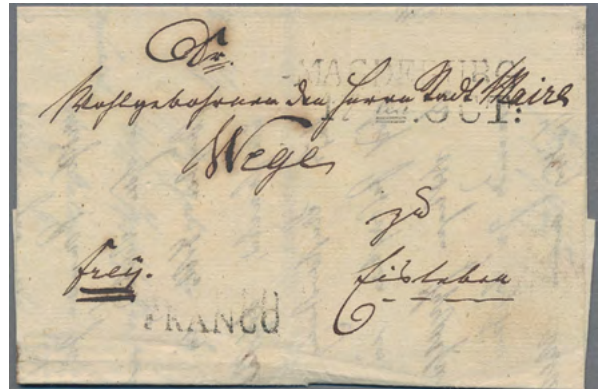 Sr.
MAGDEBURG
Wohlgebohrnen den Herrn Stadt Maire
OCT:
Wege
zu
frey.
Eisleben
FRANCO